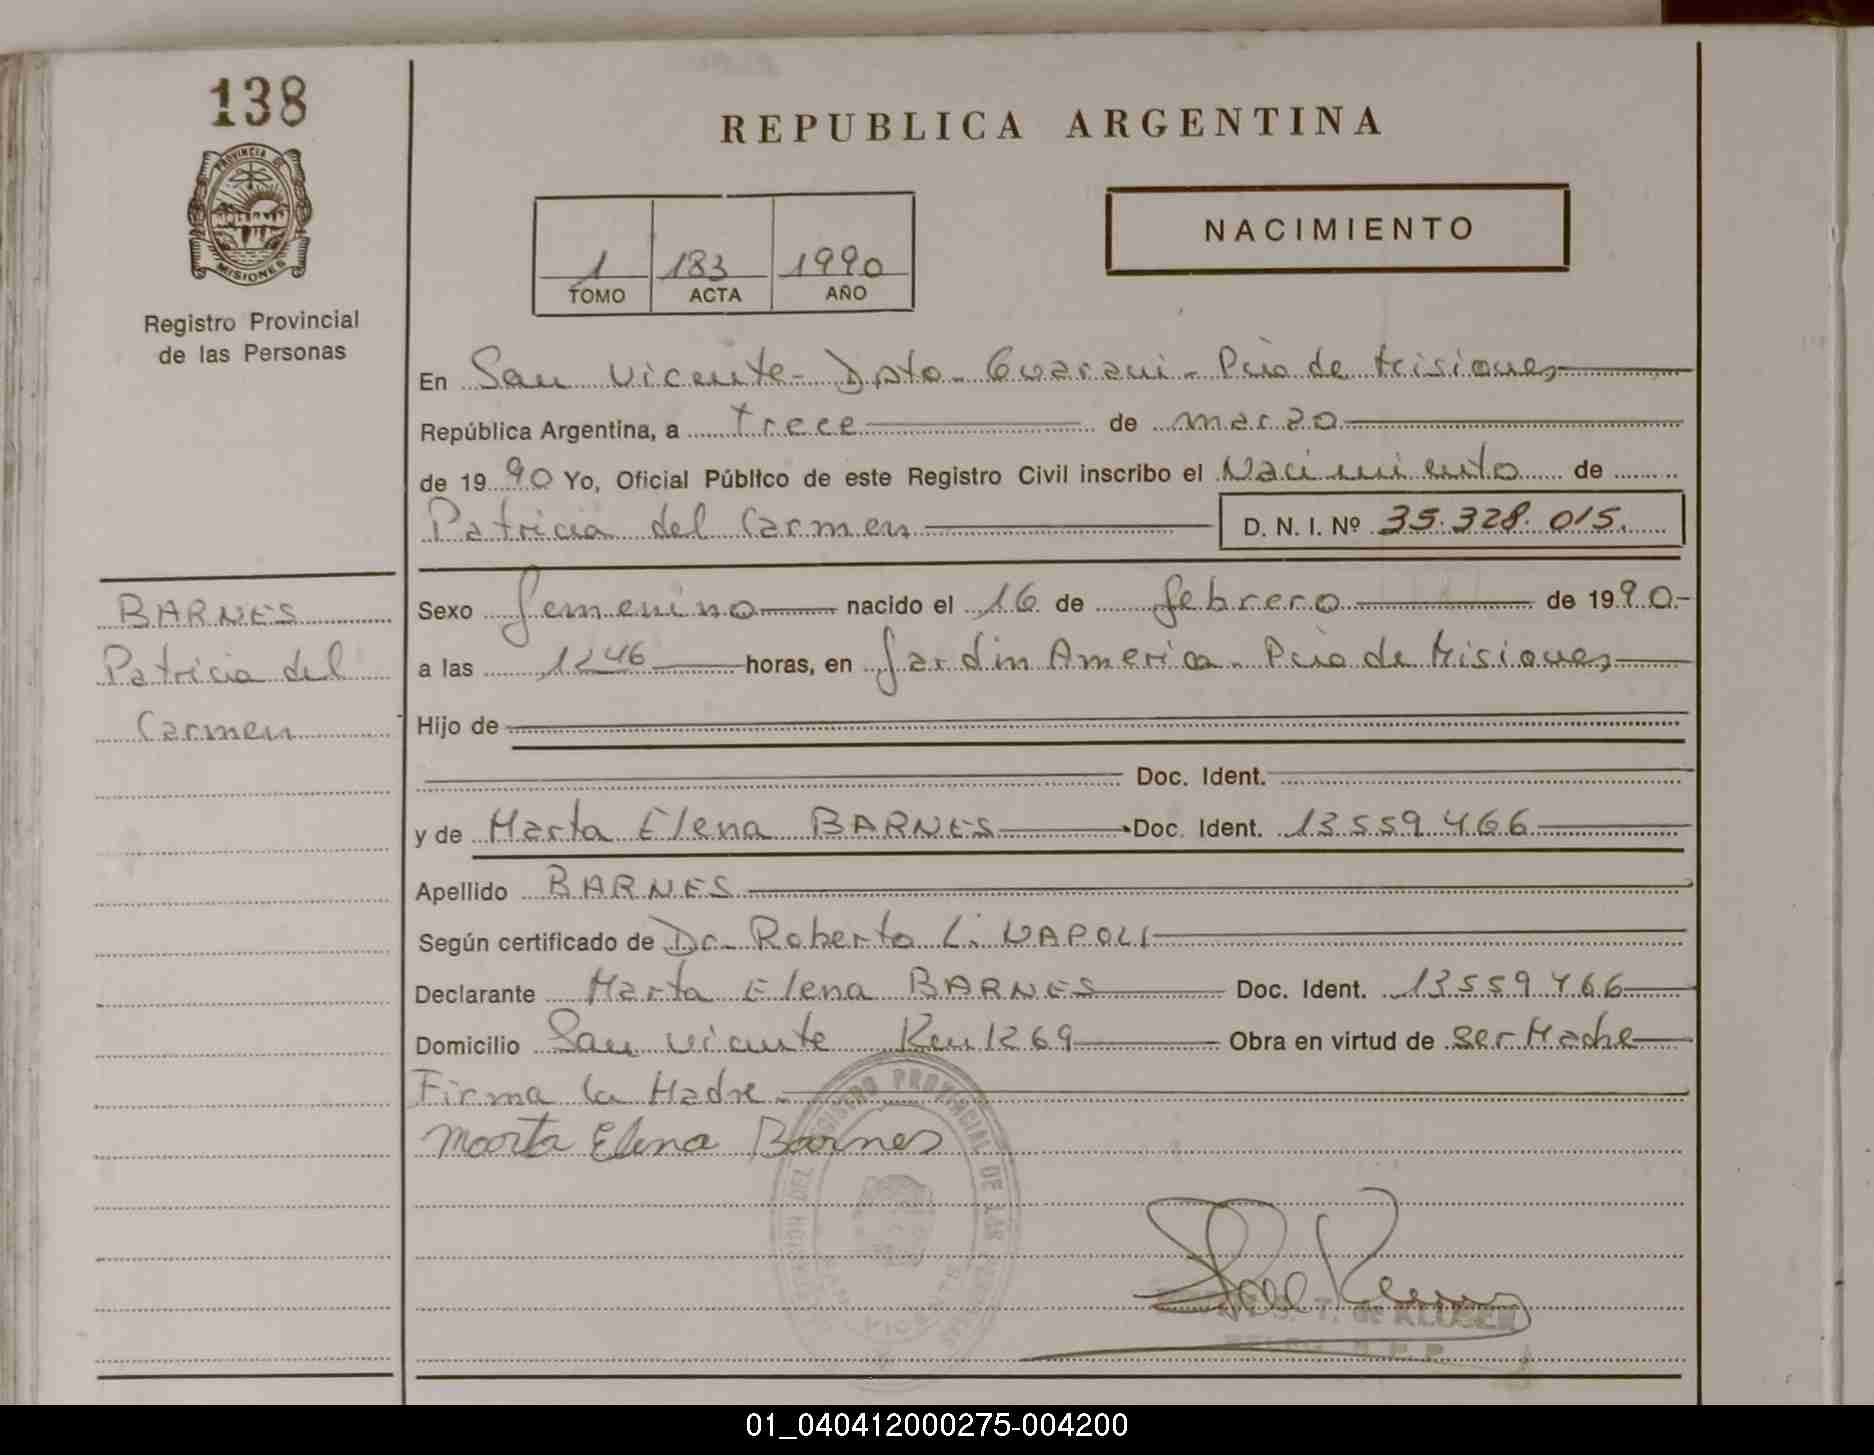 138
PROVINCIA DE
MISIONES
Registro Provincial
de las Personas
REPUBLICA ARGENTINA
NACIMIENTO
1 183 1990
TOMO ACTA AÑO
En San Vicente - Dpto - Guarani - Pcia de Misiones
República Argentina, a trece de marzo
de 1990 Yo, Oficial Público de este Registro Civil inscribo el Nacimiento de
Patricia del Carmen D. N. I. Nº 35.328.015.
BARNES
Patricia del
Carmen
Sexo femenino nacido el 16 de febrero de 1990.-
a las 1246 horas, en Jardin America - Pcia de Misiones
Hijo de
Doc. Ident.
y de Marta Elena BARNES Doc. Ident. 13559466
Apellido BARNES
Según certificado de Dr. Roberto L. NAPOLI
Declarante Marta Elena BARNES Doc. Ident. 13559466
Domicilio San Vicente Km 1269 Obra en virtud de ser Madre
Firma la Madre -
Marta Elena Barnes
REGISTRO PROVINCIAL DE LAS
SAN VICENTE
T. de KLUSEN
01_040412000275-004200